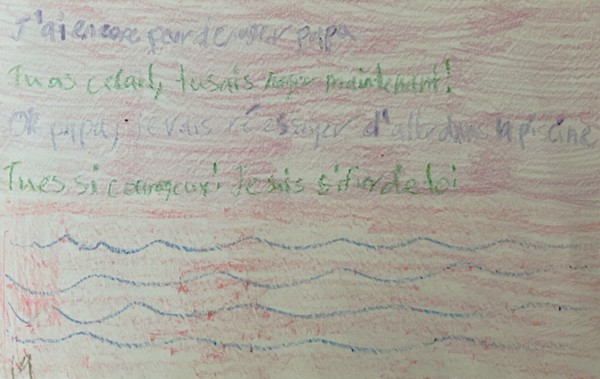 J'ai encore peur de nager papa
Tu as , tu sais nager maintenant!
Ok papa, je vais réessayer d'aller dans la piscine
Tu es si courageux! Je suis si fier de toi